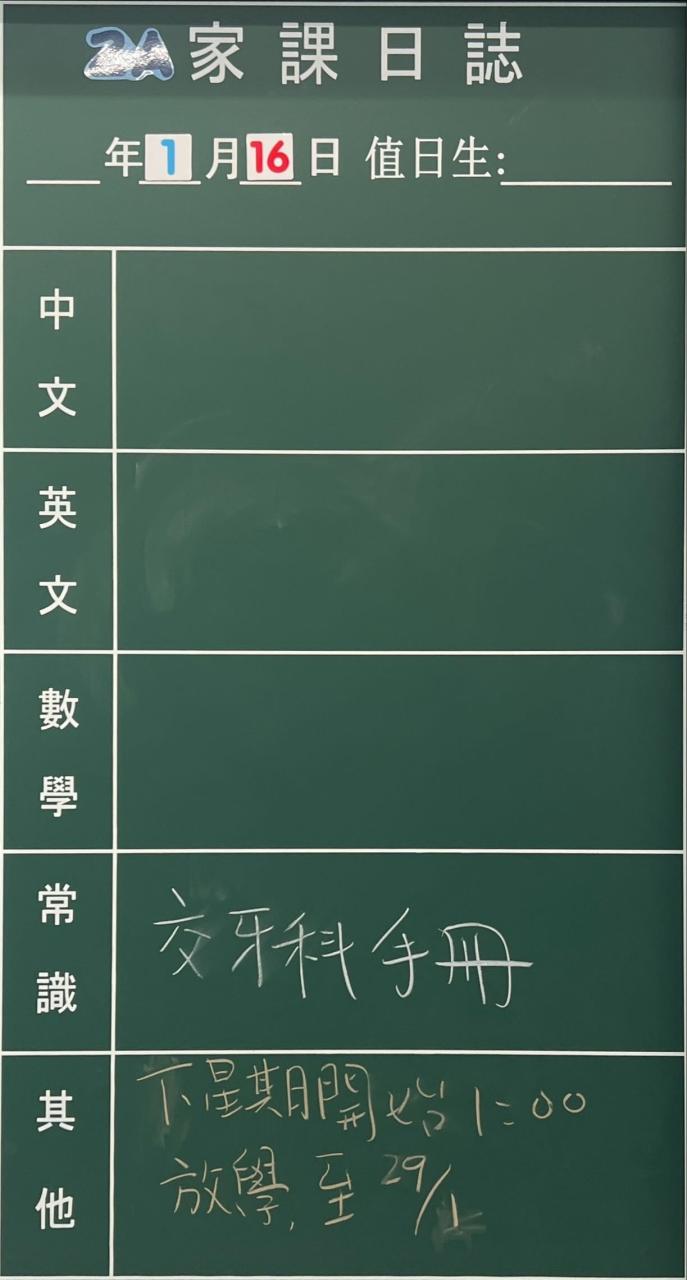 2A 家課日誌
年 1 月 16 日 值日生:
中文
英文
數學
常識 交牙科手冊
其他 下星期開始 1:00
放學, 至 29/1